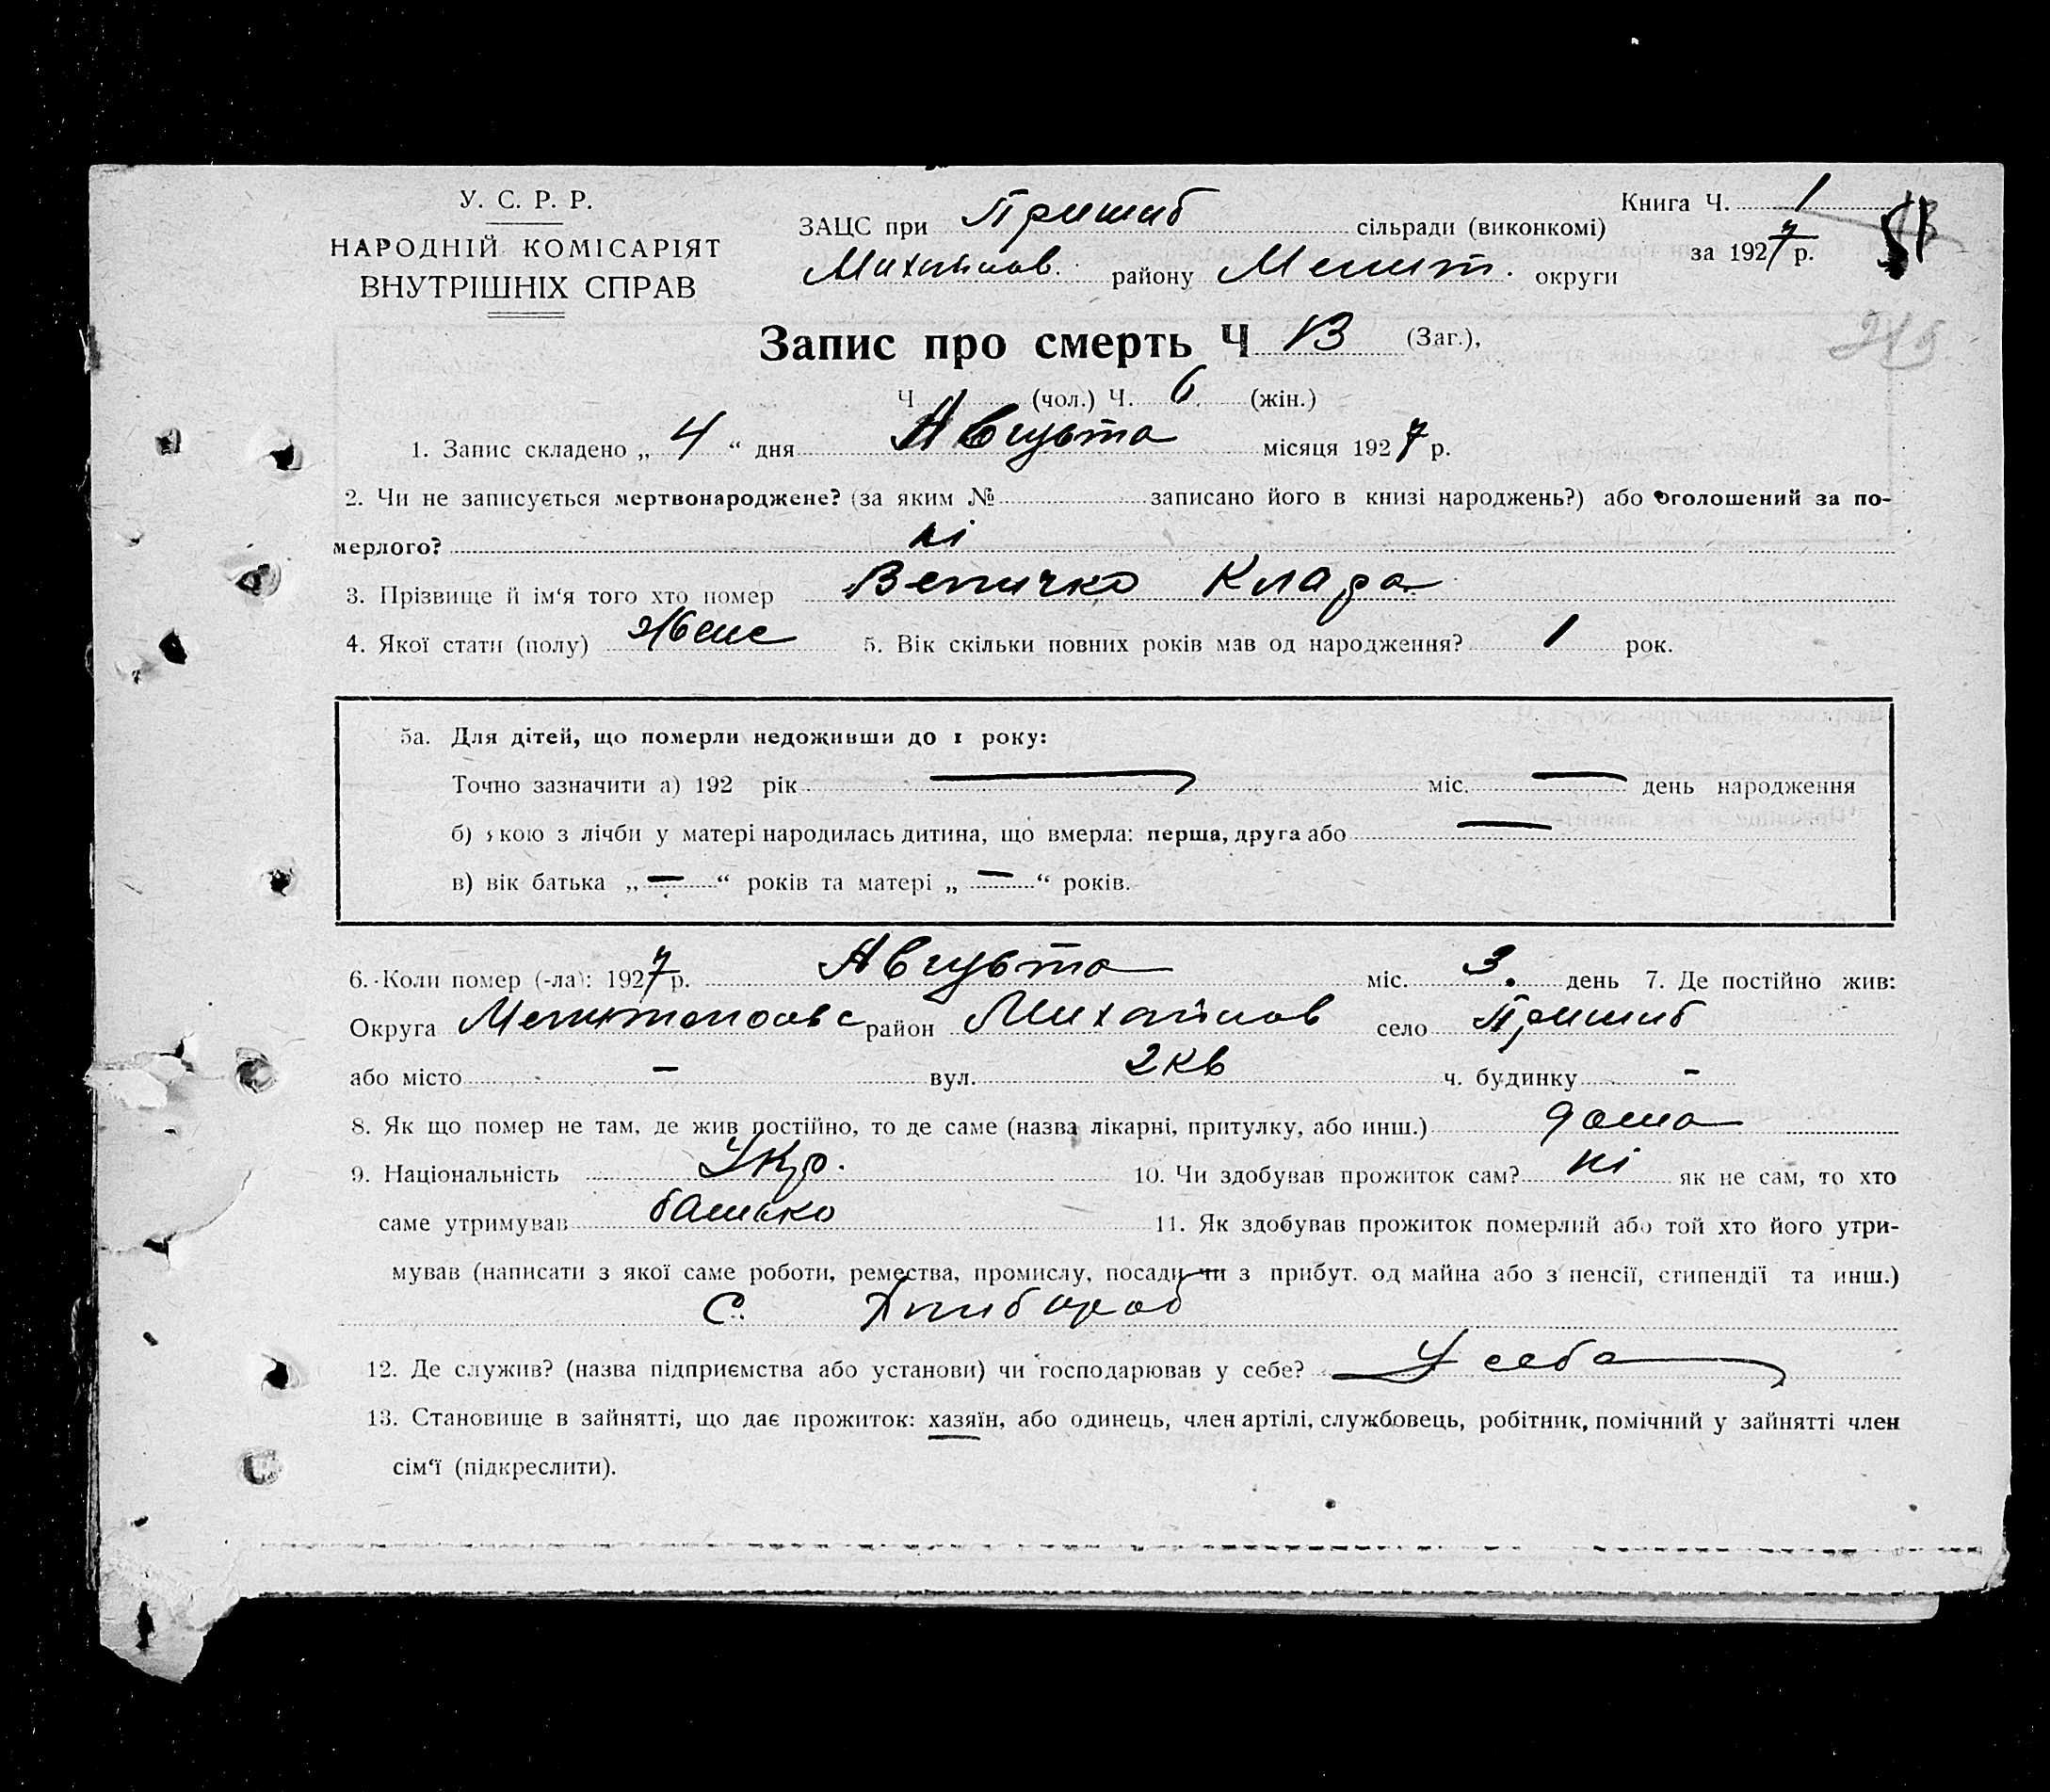 У. С. Р. Р.
НАРОДНІЙ КОМІСАРІЯТ
ВНУТРІШНІХ СПРАВ
ЗАЦС при Пришиб сільради (виконкомі)
Михайлов. району Мелит. округи
Книга Ч. 1
за 1927 р.
51
Запис про смерть Ч 13 (Заг.),
Ч (чол.) Ч. 6 (жін.)
1. Запис складено „ 4 “ дня Августа місяця 1927 р.
2. Чи не записується мертвонароджене? (за яким № записано його в книзі народжень?) або оголошений за по-
мерлого? ні
3. Прізвище й ім‘я того хто помер Величко Клара
4. Якої стати (полу) Женс 5. Вік скільки повних років мав од народження? 1 рок.
5а. Для дітей, що померли недоживши до 1 року:
Точно зазначити а) 192 рік — міс. — день народження
б) якою з лічби у матері народилась дитина, що вмерла: перша, друга або —
в) вік батька „ — “ років та матері „ — “ років.
6. Коли помер (-ла): 1927 р. Августа міс. 3. день 7. Де постійно жив:
Округа район Михайлов село Пришиб
або місто — вул. 2кв ч. будинку -
8. Як що помер не там, де жив постійно, то де саме (назва лікарні, притулку, або инш.) дома
9. Національність Укр. 10. Чи здобував прожиток сам? ні як не сам, то хто
саме утримував батько 11. Як здобував прожиток померлий або той хто його утри-
мував (написати з якої саме роботи, ремества, промислу, посади чи з прибут. од майна або з пенсії, стипендії та инш.)
С. Хлибороб
12. Де служив? (назва підприємства або установи) чи господарював у себе? У себа
13. Становище в зайнятті, що дає прожиток: хазяїн, або одинець, член артілі, службовець, робітник, помічний у зайнятті член
сім‘ї (підкреслити).